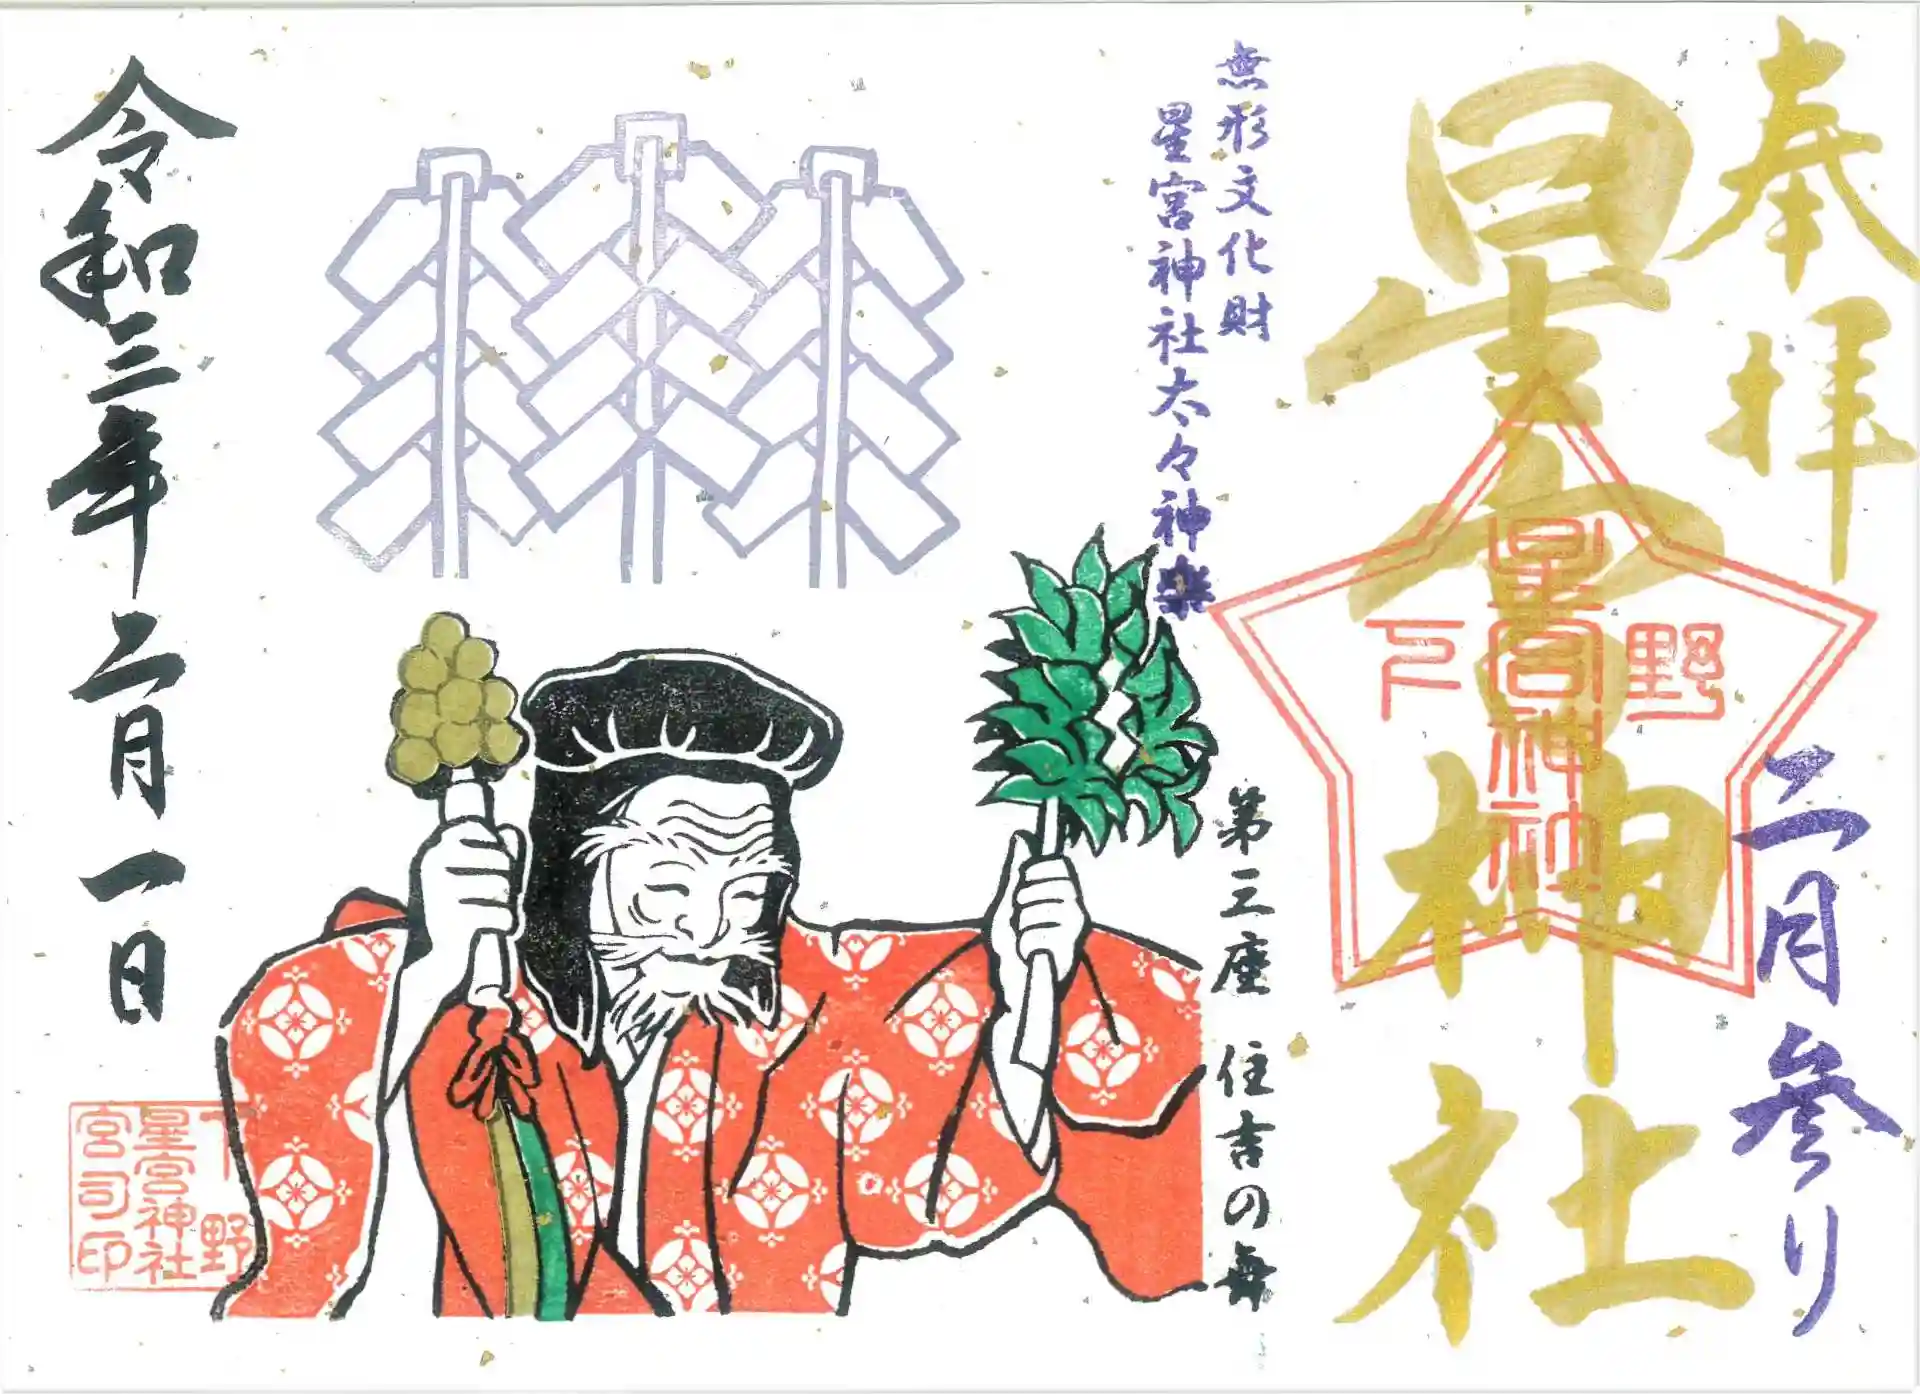 奉拝
二月参り
星宮神社
野
星宮神社
下
無形文化財
星宮神社太々神楽
第三座 住吉の舞
令和三年二月一日
下野
星宮神社
宮司印